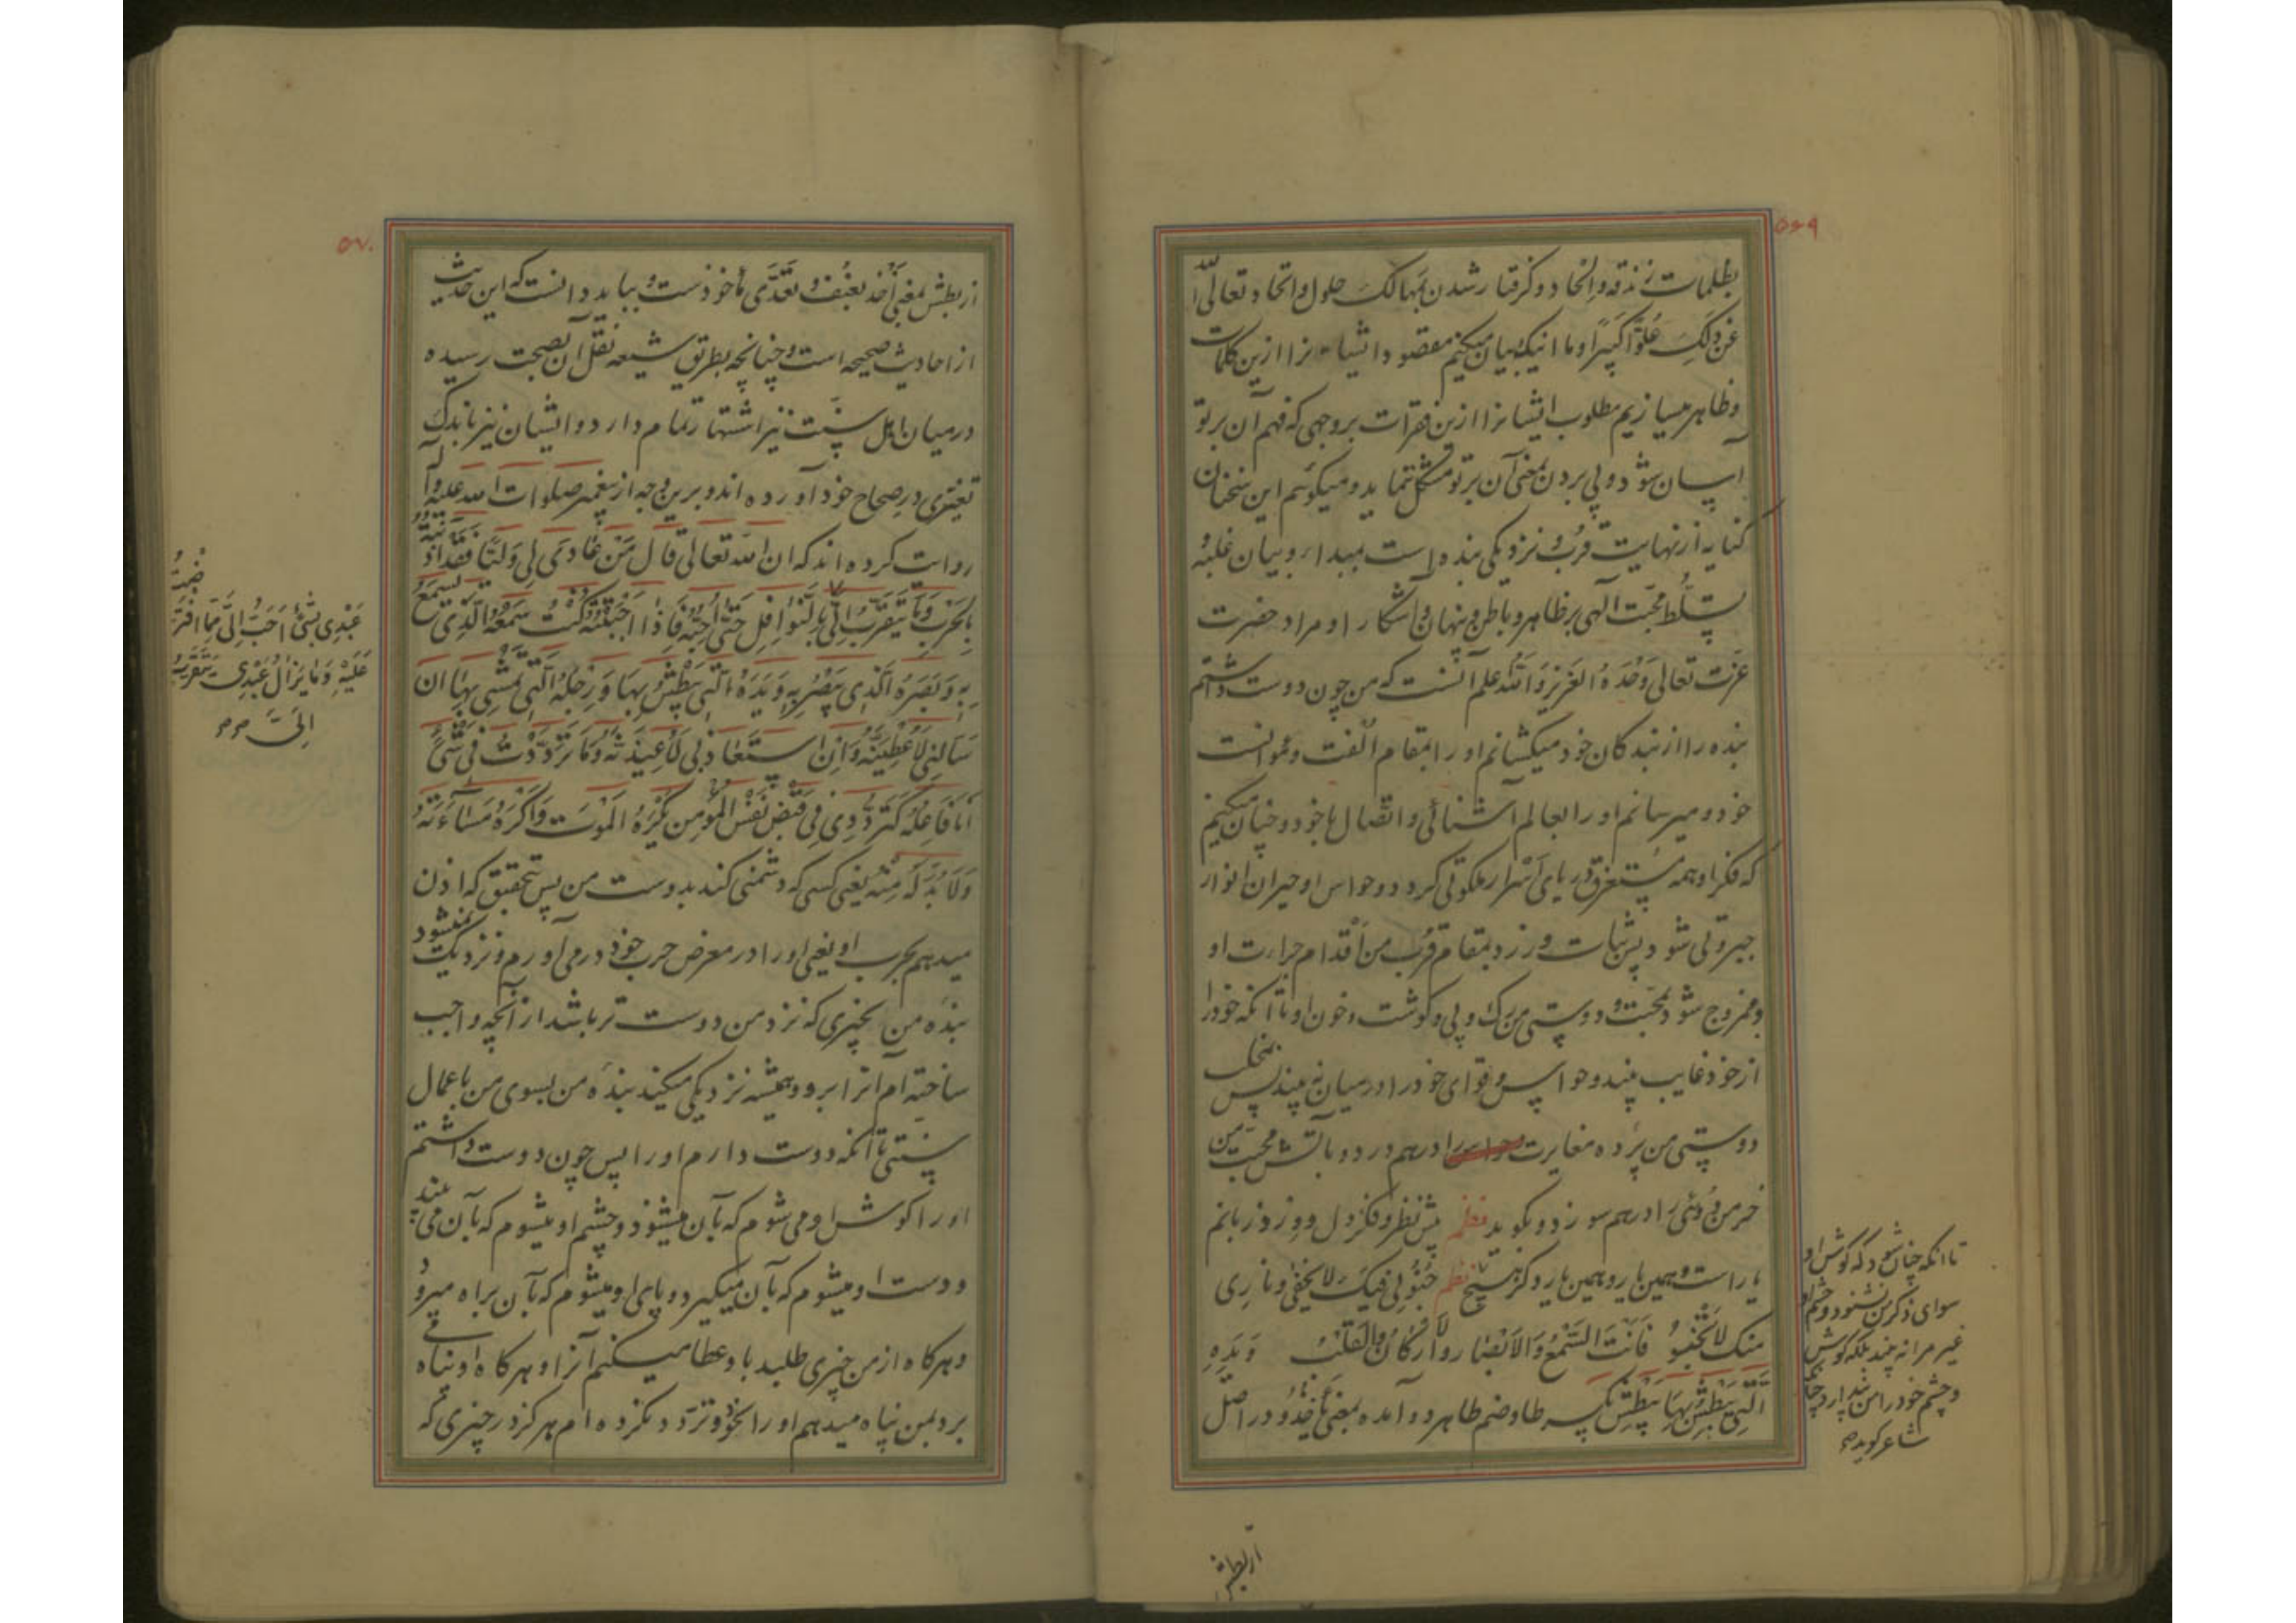 ۵۶۹
بظلمات زندقه و الحاد و گرفتار شدن بمهالک حلول و اتحاد تعالی الله
عن ذلک علوا کبیرا و ما اینک بیان میکنیم مقصود ایشانرا ازین کلمات
و ظاهر میسازیم مطلوب ایشانرا ازین فقرات بر وجهی که فهم آن بر تو
آسان شود و پی بردن بمعنی آن بر تو مشکل ننماید و میگوئیم این سخنان
کنایه از نهایت قرب و نزدیکی بنده است بمبدأ و بیان غلبه و
تسلط محبت الهی بر ظاهر و باطن و پنهان و آشکار او مراد حضرت
عزت تعالی وحده العزیز و الله اعلم آنست که من چون دوست داشتم
بنده را از بندگان خود میکشانم او را بمقام الفت و موانست
خود و میرسانم او را بعالم آشنائی و اتصال با خود و چنان میکنم
که فکر او همه مستغرق دریای اسرار ملکوتی گردد و حواس او حیران انوار
جبروتی شود پس ثبات ورزد بمقام قرب من اقدام جرات او
و ممزوج شود محبت و دوستی من برگ و پی و گوشت و خون او تا آنکه خود را
از خود غایب بیند و حواس و قوای خود را در میان نه بیند پس
دوستی من پرده مغایرت را درهم دردد و بآتش محبت من
خرمن دوئی را درهم سوزد و بگوید نظم پیش نظر و فکر دل و ورد زبانم
یار است و همین یار و همین یار و دگر هیچ نظم جنونی فیک لا یخفی و ناری
منک لا تخبو فانت السمع و الابصار و الارکان و القلب و یده
التی یبطش بها یبطش بکسر طا و ضم طا هر دو آمده بمعنی یاخذ و در اصل
تا آنکه چنان شود که گوش او
سوای ذکر من نشنود و چشم او
غیر مرا نه بیند بلکه گوش
و چشم خود را من پندارد چنانکه
شاعر گوید
از بطش
۵۷۰
از بطش بمعنی اخذ بعنف و تعدی ماخوذست و بباید دانست که این حدیث
از احادیث صحیحه است و چنانچه بطریق شیعه نقل آن بصحت رسیده
در میان اهل سنت نیز اشتهار تمام دارد و ایشان نیز باندک
تغییری در صحاح خود آورده اند و برین وجه از پیغمبر صلوات الله علیه و آله
روایت کرده اند که ان الله تعالی قال من عادی لی ولیا فقد اذنته
بالحرب و ما یتقرب الی بالنوافل حتی احبه فاذا احببته کنت سمعه الذی یسمع
به و بصره الذی یبصر به و یده التی یبطش بها و رجله التی یمشی بها ان
سالنی لاعطینه و ان استعاذ بی لاعیذنه و ما ترددت فی شیء
انا فاعله کترددی فی قبض نفس المؤمن یکره الموت و اکره مساءته
و لا بد له منه یعنی کسی که دشمنی کند بدوست من پس بتحقیق که اذن
میدهم بحرب او یعنی او را در معرض حرب خود درمی آورم و نزدیک نمیشود
بنده من بچیزی که نزد من دوست تر باشد از آنچه واجب
ساخته ام آنرا برو و همیشه نزدیکی میکند بنده من بسوی من باعمال
سنتی تا آنکه دوست دارم او را پس چون دوست داشتم
او را گوش او می شوم که بآن میشنود و چشم او میشوم که بآن می بیند
و دست او میشوم که بآن میگیرد و پای او میشوم که بآن براه میرود
و هرگاه از من چیزی طلبد باو عطا میکنم آنرا و هرگاه او پناه
برد بمن پناه میدهم او را بخود و تردد نکرده ام هرگز در چیزی که
عبدی بشیء احب الی مما افترضت
علیه و ما یزال عبدی یتقرب
الی